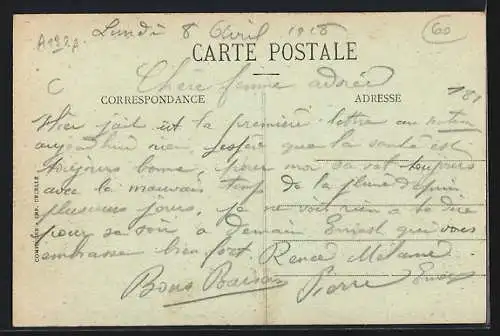 A192A
Lundi 8 Avril 1918
60
CARTE POSTALE
Chère femme adorée
CORRESPONDANCE ADRESSE
181
C
Hier jait ut ta première lettre au matin
aujourdhui rien, jespère que ta santé est
toujours bonne, pour moi sa vat toujours
avec la mauvais temp de la pluie depuis
plusieurs jours, je ne voit rien a te dire
pour se soir à demain Ernest qui vous
embrasse bien fort Renée Mélanie
Bons Baisers Pierre Ernest